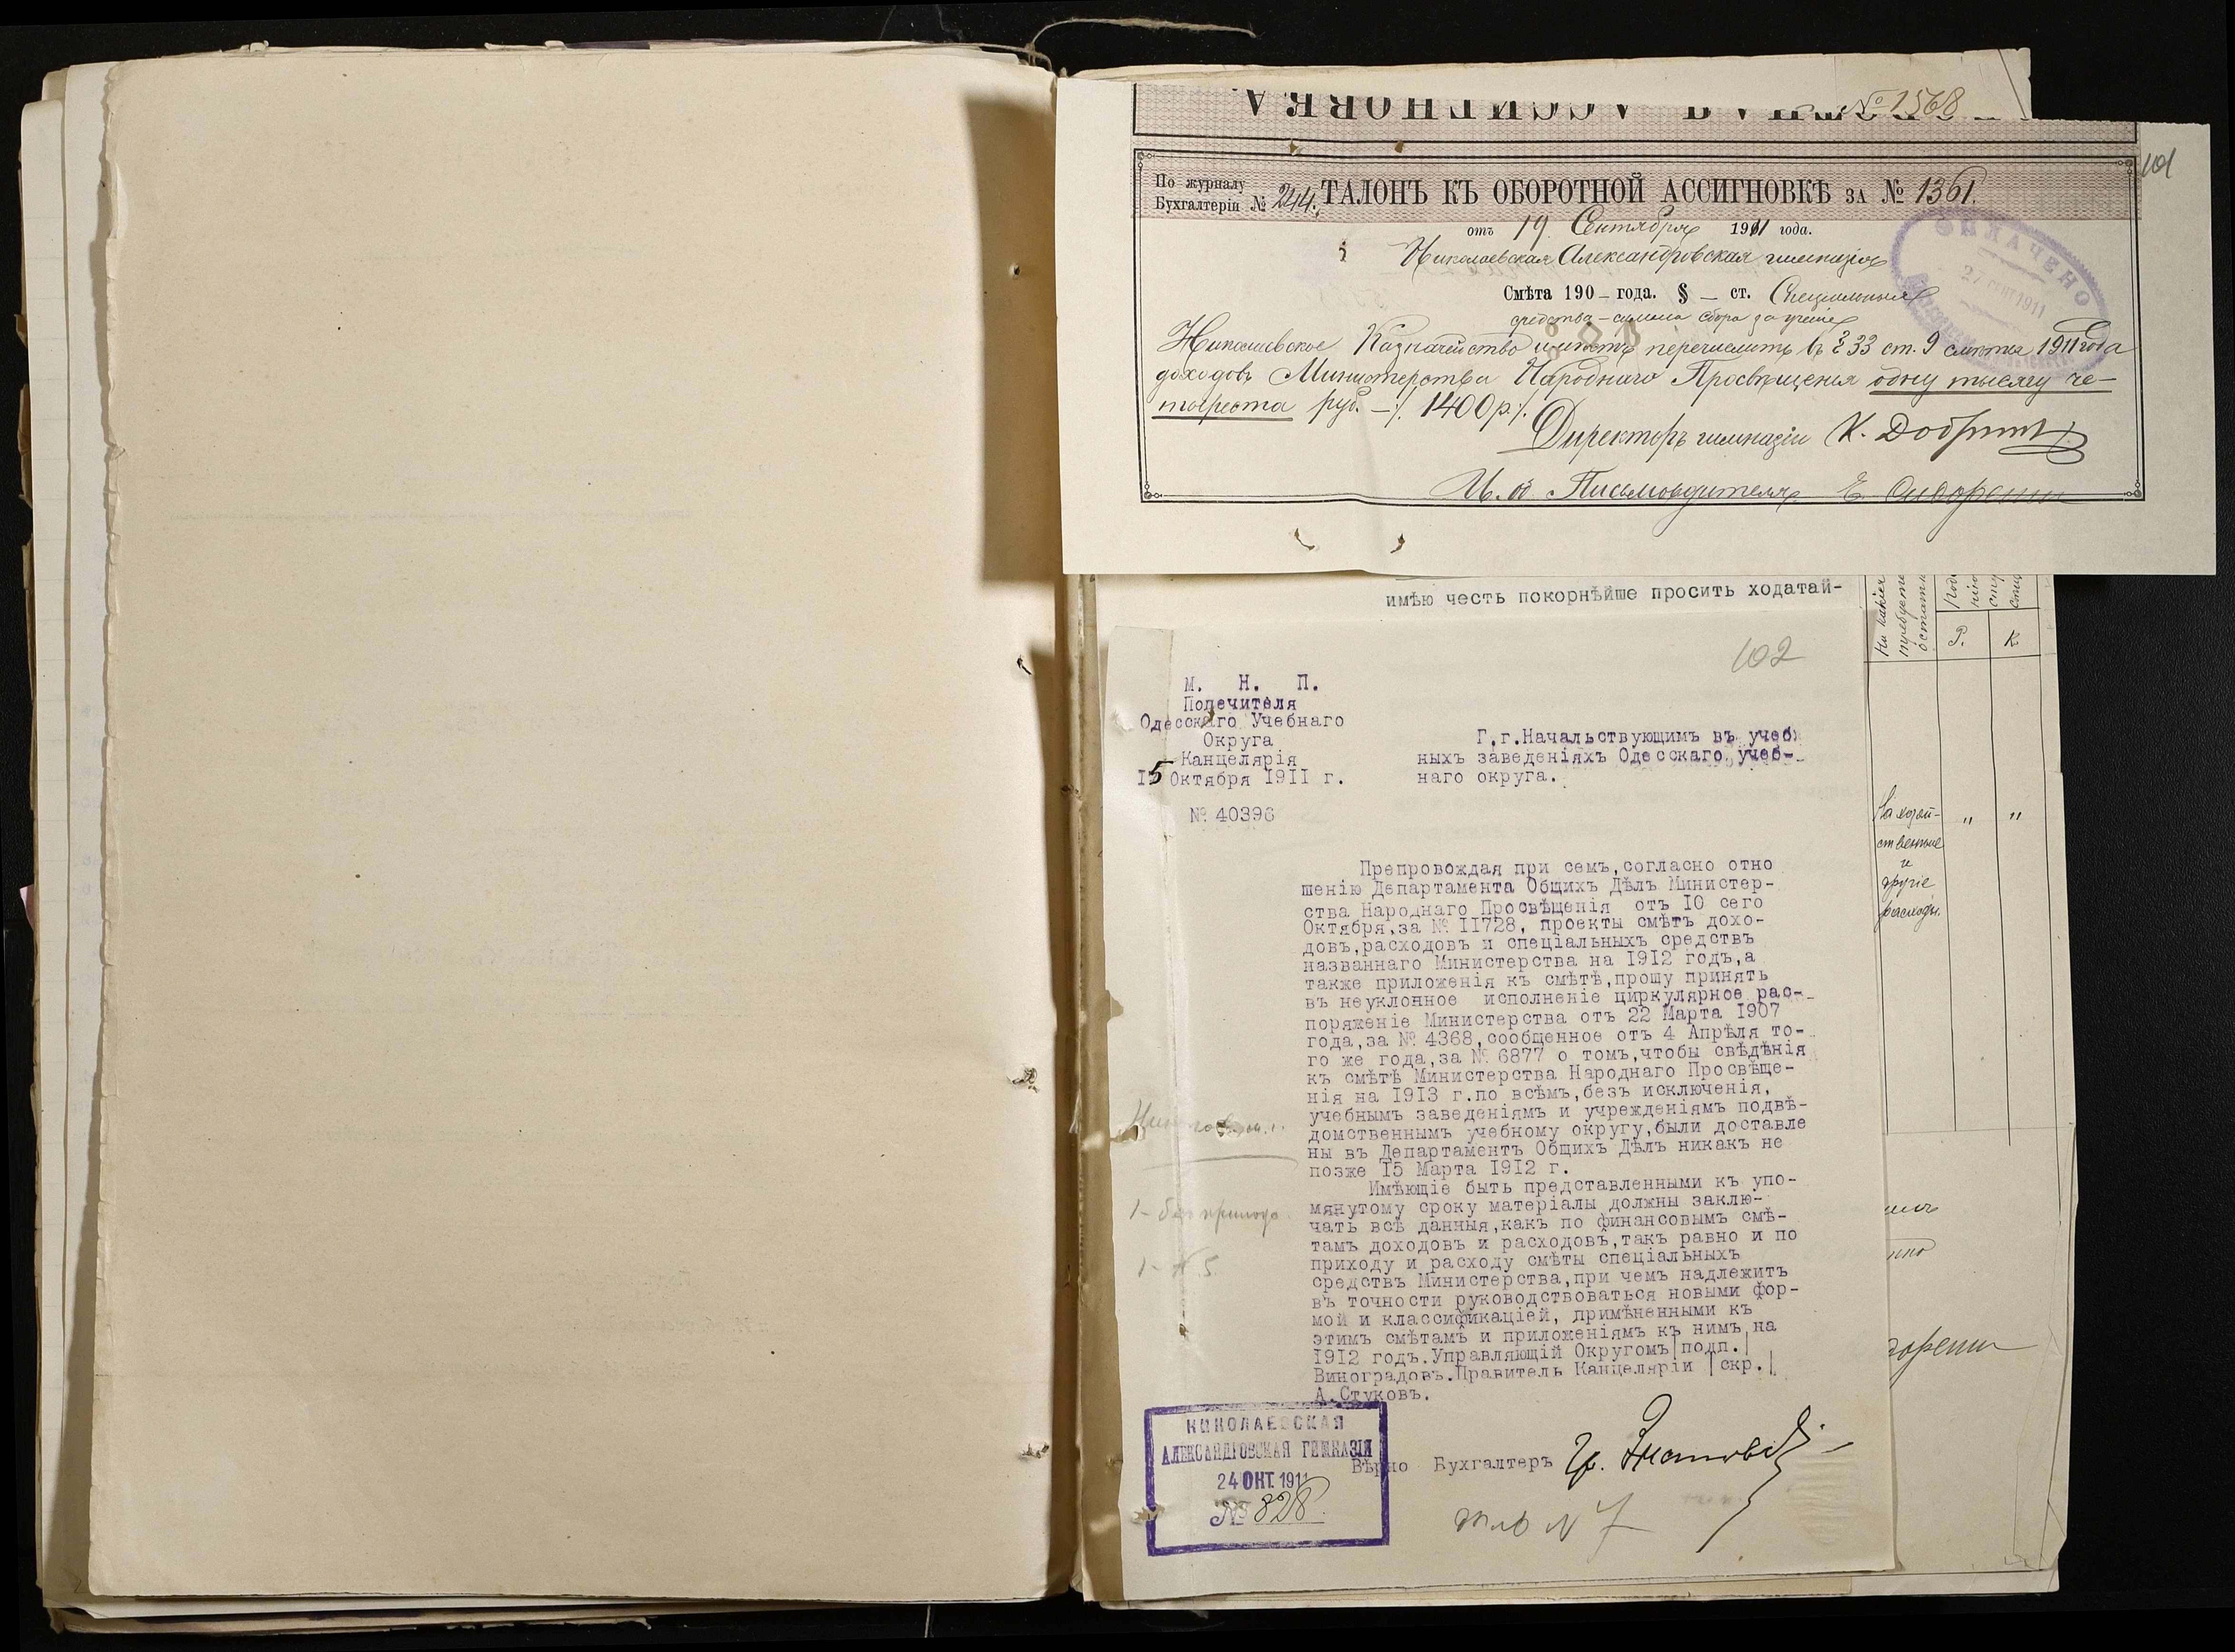 № 1568
101
По журналу
Бухгалтеріи № 244.
ТАЛОНЪ КЪ ОБОРОТНОЙ АССИГНОВКѢ ЗА № 1361.
отъ 19 Сентября 1911 года.
Николаевская Александровская гимназія
Смѣта 190 – года. § – ст. Спеціальныя
средства – сумма сбора за ученіе
Николаевское Казначейство имѣетъ перечислить въ § 33 ст. 9 смѣты 1911 года
доходовъ Министерства Народнаго Просвѣщенія одну тысячу че-
тыреста руб. –/. 1400 р./.
Директоръ гимназіи К. Добр
И. о. Письмоводителя Е. Сидорен
ОПЛАЧЕНО
27 СЕНТ 1911
имѣю честь покорнѣйше просить ходатай-
На какія
Р. К
На хозяй-
ственные
и
другіе
расходы.
" "
102
М. Н. П.
Попечителя
Одесскаго Учебнаго
Округа
Канцелярія
15 Октября 1911 г.
№ 40396
Г.г.Начальствующимъ въ учеб
ныхъ заведеніяхъ Одесскаго учеб-
наго округа.
Препровождая при семъ,согласно отно
шенію Департамента Общихъ Дѣлъ Министер-
ства Народнаго Просвѣщенія отъ 10 сего
Октября,за № 11728, проекты смѣтъ дохо-
довъ,расходовъ и спеціальныхъ средствъ
названнаго Министерства на 1912 годъ,а
также приложенія къ смѣтѣ,прошу принять
въ неуклонное исполненіе циркулярное рас-
поряженіе Министерства отъ 22 Марта 1907
года,за № 4368,сообщенное отъ 4 Апрѣля то-
го же года,за № 6877 о томъ,чтобы свѣдѣнія
къ смѣтѣ Министерства Народнаго Просвѣще-
нія на 1913 г.по всѣмъ,безъ исключенія,
учебнымъ заведеніямъ и учрежденіямъ подвѣ-
домственнымъ учебному округу,были доставле
ны въ Департаментъ Общихъ Дѣлъ никакъ не
позже 15 Марта 1912 г.
Имѣющіе быть представленными къ упо-
мянутому сроку матеріалы должны заклю-
чать всѣ данныя,какъ по финансовымъ смѣ-
тамъ доходовъ и расходовъ,такъ равно и по
приходу и расходу смѣты спеціальныхъ
средствъ Министерства,при чемъ надлежитъ
въ точности руководствоваться новыми фор-
мой и классификаціей, примѣненными къ
этимъ смѣтамъ и приложеніямъ къ нимъ на
1912 годъ.Управляющій Округомъ|подп.|
Виноградовъ.Правитель Канцеляріи |скр.|
А.Стуковъ.
Вѣрно Бухгалтеръ
№ 7
НИКОЛАЕВСКАЯ
АЛЕКСАНДРОВСКАЯ ГИМНАЗІЯ
24 ОКТ. 1911
№ 828.